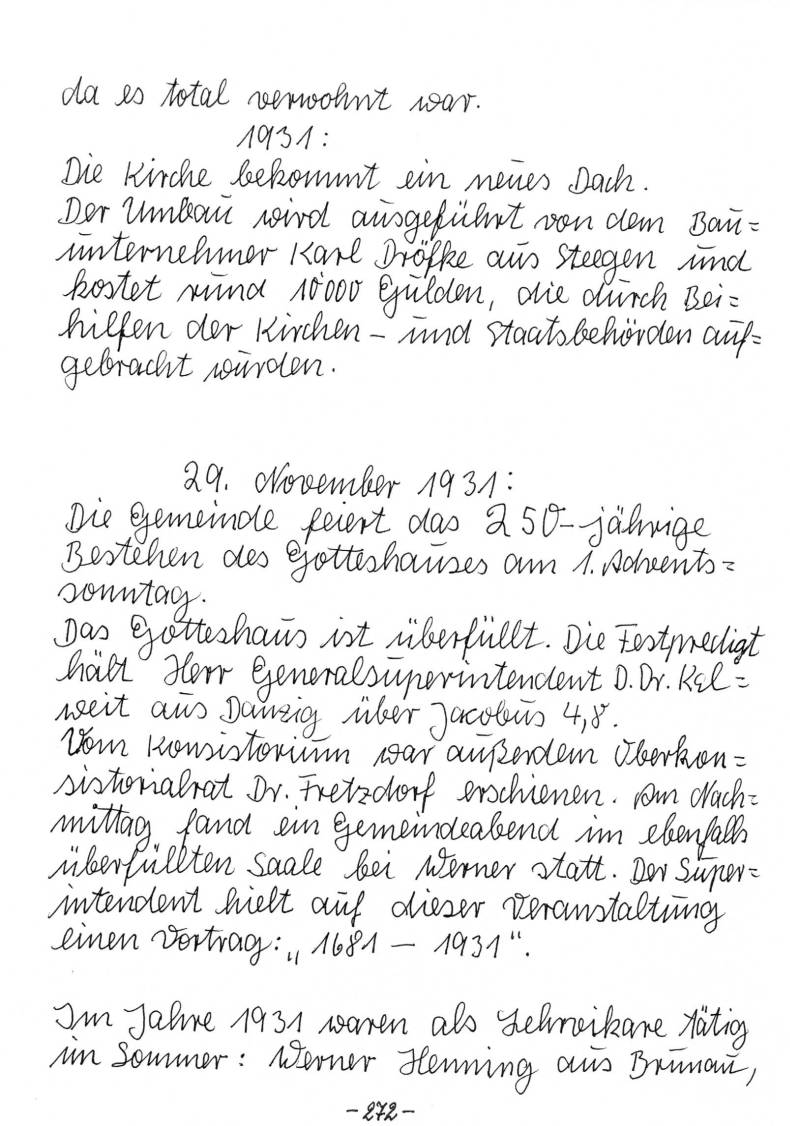 da es total verwohnt war.
1931:
Die Kirche bekommt ein neues Dach.
Der Umbau wird ausgeführt von dem Bau=
unternehmer Karl Dröfke aus Steegen und
kostet rund 10000 Gulden, die durch Bei=
hilfen der Kirchen- und Staatsbehörden auf=
gebracht wurden.
29. November 1931:
Die Gemeinde feiert das 250-jährige
Bestehen des Gotteshauses am 1. Advents=
sonntag.
Das Gotteshaus ist überfüllt. Die Festpredigt
hält Herr Generalsuperintendent D. Dr. Kal=
weit aus Danzig über Jacobus 4,8.
Vom Konsistorium war außerdem Oberkon=
sistorialrat Dr. Fretzdorf erschienen. Am Nach=
mittag fand ein Gemeindeabend im ebenfalls
überfüllten Saale bei Werner statt. Der Super=
intendent hielt auf dieser Veranstaltung
einen Vortrag: „1681 – 1931“.
Im Jahre 1931 waren als Lehrvikare tätig
im Sommer: Werner Henning aus Brunau,
-272-